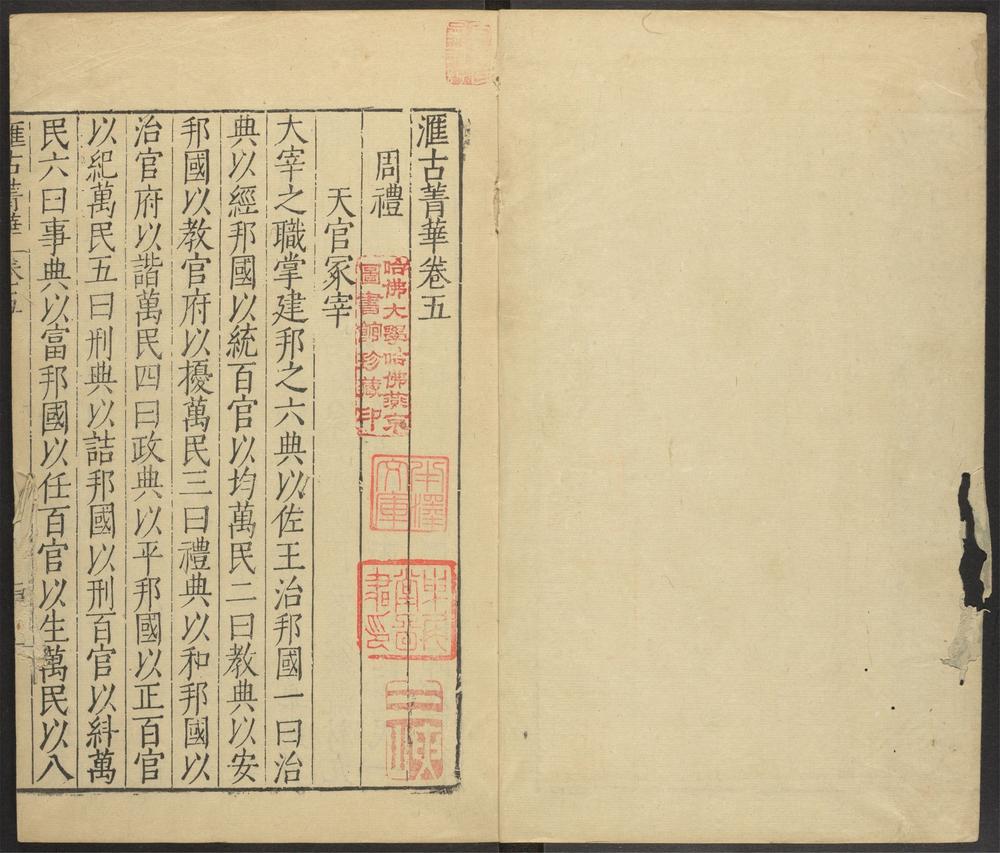 滙古菁華卷五
周禮
天官冢宰
大宰之職掌建邦之六典以佐王治邦國一曰治
典以經邦國以統百官以均萬民二曰教典以安
邦國以教官府以擾萬民三曰禮典以和邦國以
治官府以諧萬民四曰政典以平邦國以正百官
以紀萬民五曰刑典以詰邦國以刑百官以糾萬
民六曰事典以富邦國以任百官以生萬民以八
滙古菁華 卷五
哈佛大學哈佛燕京
圖書館珍藏印
半澤
文庫